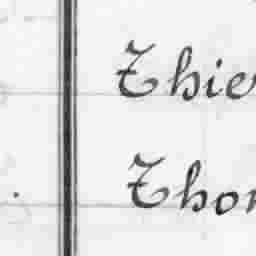 Thie
Thor